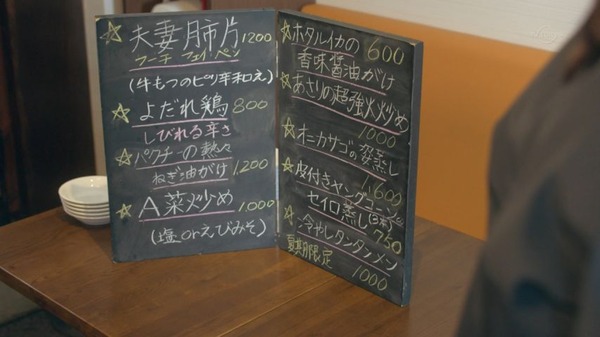 ☆夫妻肺片 1200
フーチ フェイペン
(牛もつのピリ辛和え)
☆よだれ鶏 800
しびれる辛さ
☆パクチーの熱々
ねぎ油がけ 1,200
☆A菜炒め 1,000
(塩orえびみそ)
☆ホタルイカの 600
香味醤油がけ
☆あさりの超強火炒め
1000
☆オニカサゴの姿蒸し
1,600
☆皮付きヤングコーンの
セイロ蒸し(3本) 750
☆冷やしタンタンメン
夏期限定 1000